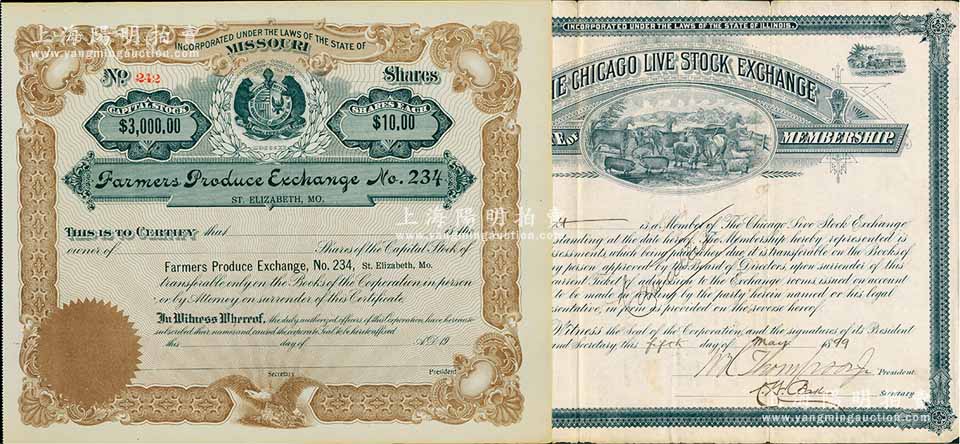 INCORPORATED UNDER THE LAWS OF THE STATE OF
MISSOURI
No 242
Shares
CAPITAL STOCK
$3,000.00
SHARES EACH
$10.00
Farmers Produce Exchange No. 234
ST. ELIZABETH, MO.
THIS IS TO CERTIFY that is the
owner of Shares of the Capital Stock of
Farmers Produce Exchange, No. 234, St. Elizabeth, Mo.
transferable only on the Books of the Corporation in person
or by Attorney on surrender of this Certificate.
In Witness Whereof, the duly authorized officers of this Corporation have hereunto
subscribed their names and caused the corporate Seal to be hereto affixed
this day of A.D. 19
Secretary
President
INCORPORATED UNDER THE LAWS OF THE STATE OF ILLINOIS.
THE CHICAGO LIVE STOCK EXCHANGE
MEMBERSHIP.
is a Member of The Chicago Live Stock Exchange
standing at the date hereof. The Membership hereby represented is
assessments, which being paid they due, it is transferable on the Books of
any person approved by the Board of Directors upon surrender of this
current Ticket of admission to the Exchange rooms issued on account
to be made in writing by the party herein named or his legal
sentative, in form as provided on the reverse hereof.
Witness the Seal of the Corporation, and the signatures of its President
and Secretary this fifth day of May 1899
President
Secretary
上海陽明拍賣
www.yangmingauction.com
上海陽明拍賣
www.yangmingauction.com
上海陽明拍賣
www.yangmingauction.com
上海陽明拍賣
www.yangmingauction.com
上海陽明拍賣
www.yangmingauction.com